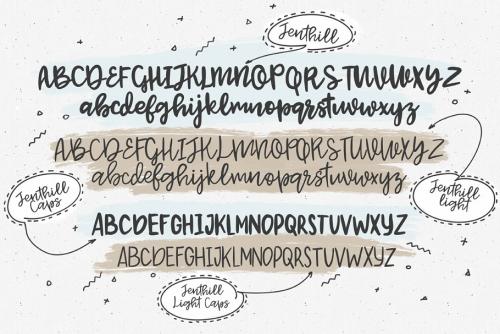 Jenthill
ABCDEFGHIJKLMNOPQRSTUVWXYZ
abcdefghijklmnopqrstuvwxyz
ABCDEFGHIJKLMNOPQRSTUVWXYZ
abcdefghijklmnopqrstuvwxyz
Jenthill
Caps
Jenthill
light
ABCDEFGHIJKLMNOPQRSTUVWXYZ
ABCDEFGHIJKLMNOPQRSTUVWXYZ
Jenthill
Light Caps